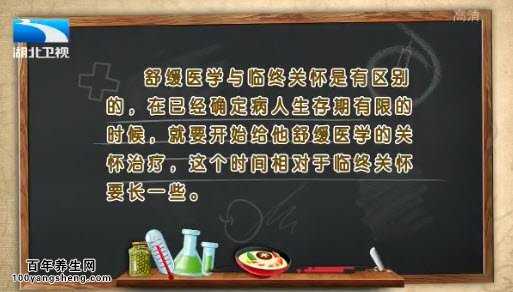 湖北卫视
高清
舒缓医学与临终关怀是有区别
的，在已经确定病人生存期有限的
时候，就要开始给他舒缓医学的关
怀治疗，这个时间相对于临终关怀
要长一些。
百年养生网
100yangsheng.com